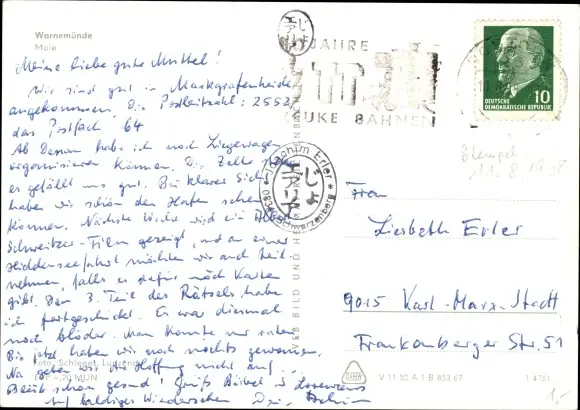 Warnemünde
Mole
Meine liebe gute Muttel!
Wir sind gut in Markgrafenheide
angekommen. Die Postleitzahl: 2552,
das Postfach 64
Ab Dessau habe ich noch Liegewagen
organisieren können. Die Zelte
es gefällt uns gut. Bei klarer Sicht
haben wir schon den Hafen sehen
können. Nächste Woche wird ein Albert
Schweitzer-Film gezeigt, und an einer
Hiddenseefahrt möchten wir auch teil-
nehmen, falls es dafür noch Karten
gibt. Den 3. Teil des Rätsels habe
ich fortgeschickt. Es war diesmal
noch blöder. Man konnte nur raten.
Bis jetzt haben wir noch nichts gewonnen.
Na geben wir die Hoffnung nicht auf...
Bleibt schön gesund! Grüße Bärbel
Auf baldiges Wiedersehen Dein Achim
JAHRE
BAHNEN
DEUTSCHE
DEMOKRATISCHE REPUBLIK
10
Stempel
11.8.1968
Joachim Erler
Schwarzenberg
Frau
Liesbeth Erler
9015 Karl-Marx-Stadt
Frankenberger Str. 51
Foto: Schlegel,
-,20 MDN
BILD UND HEIMAT
V 11 50 A 1 B 853.67
1 4761
1,-